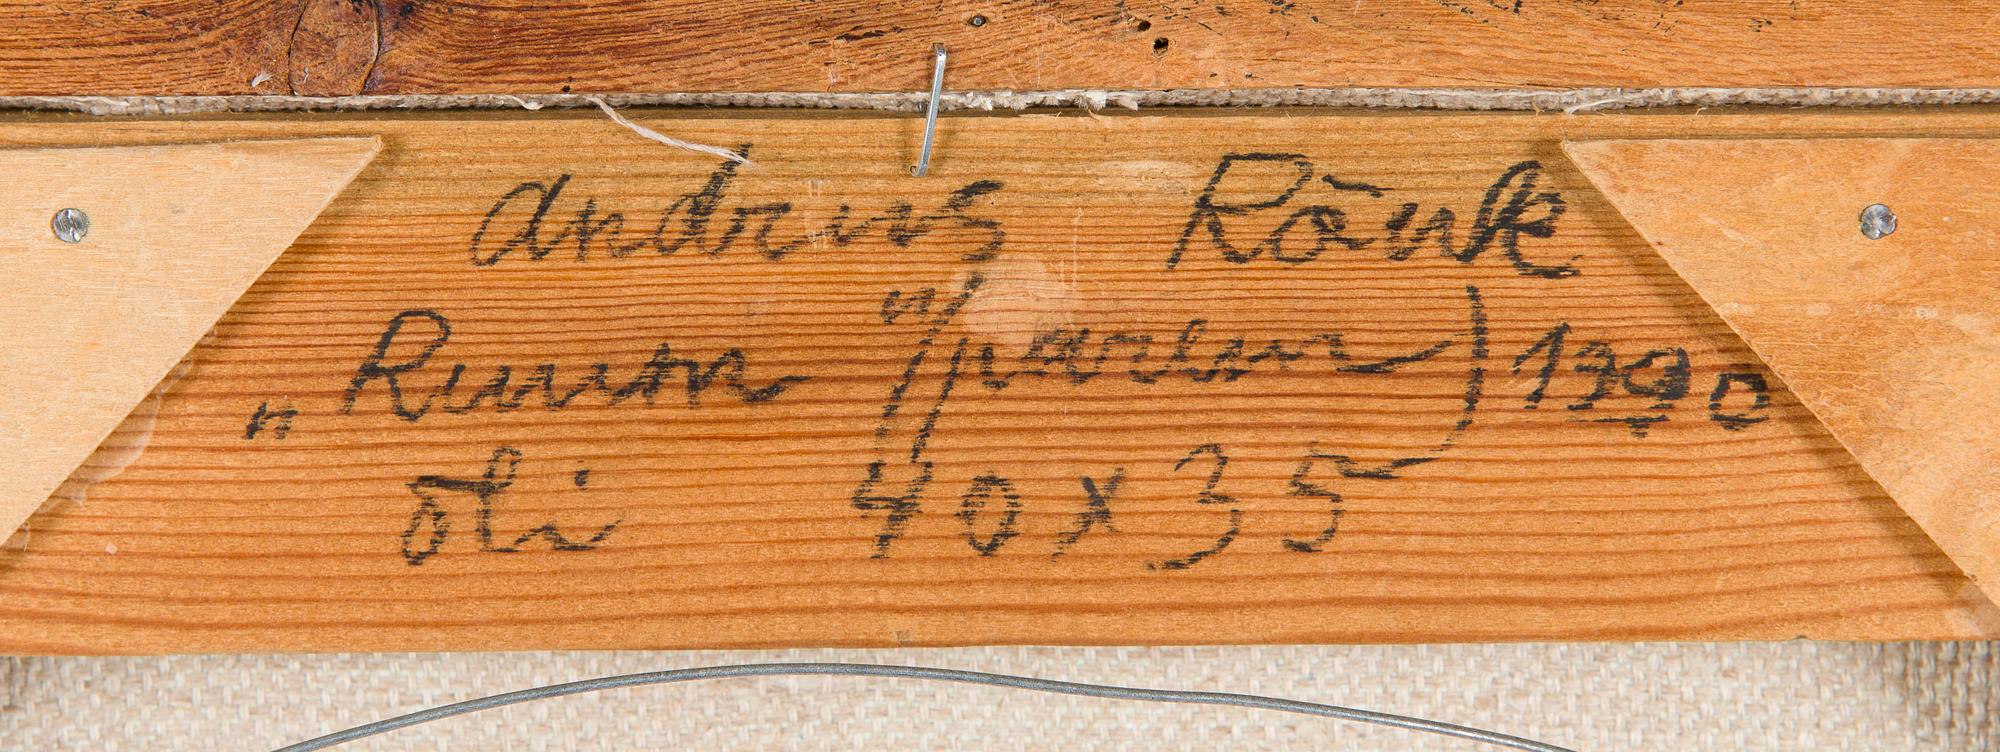 Andrus Rõuk
„Ruum” (parem) 1990
õli 40x35